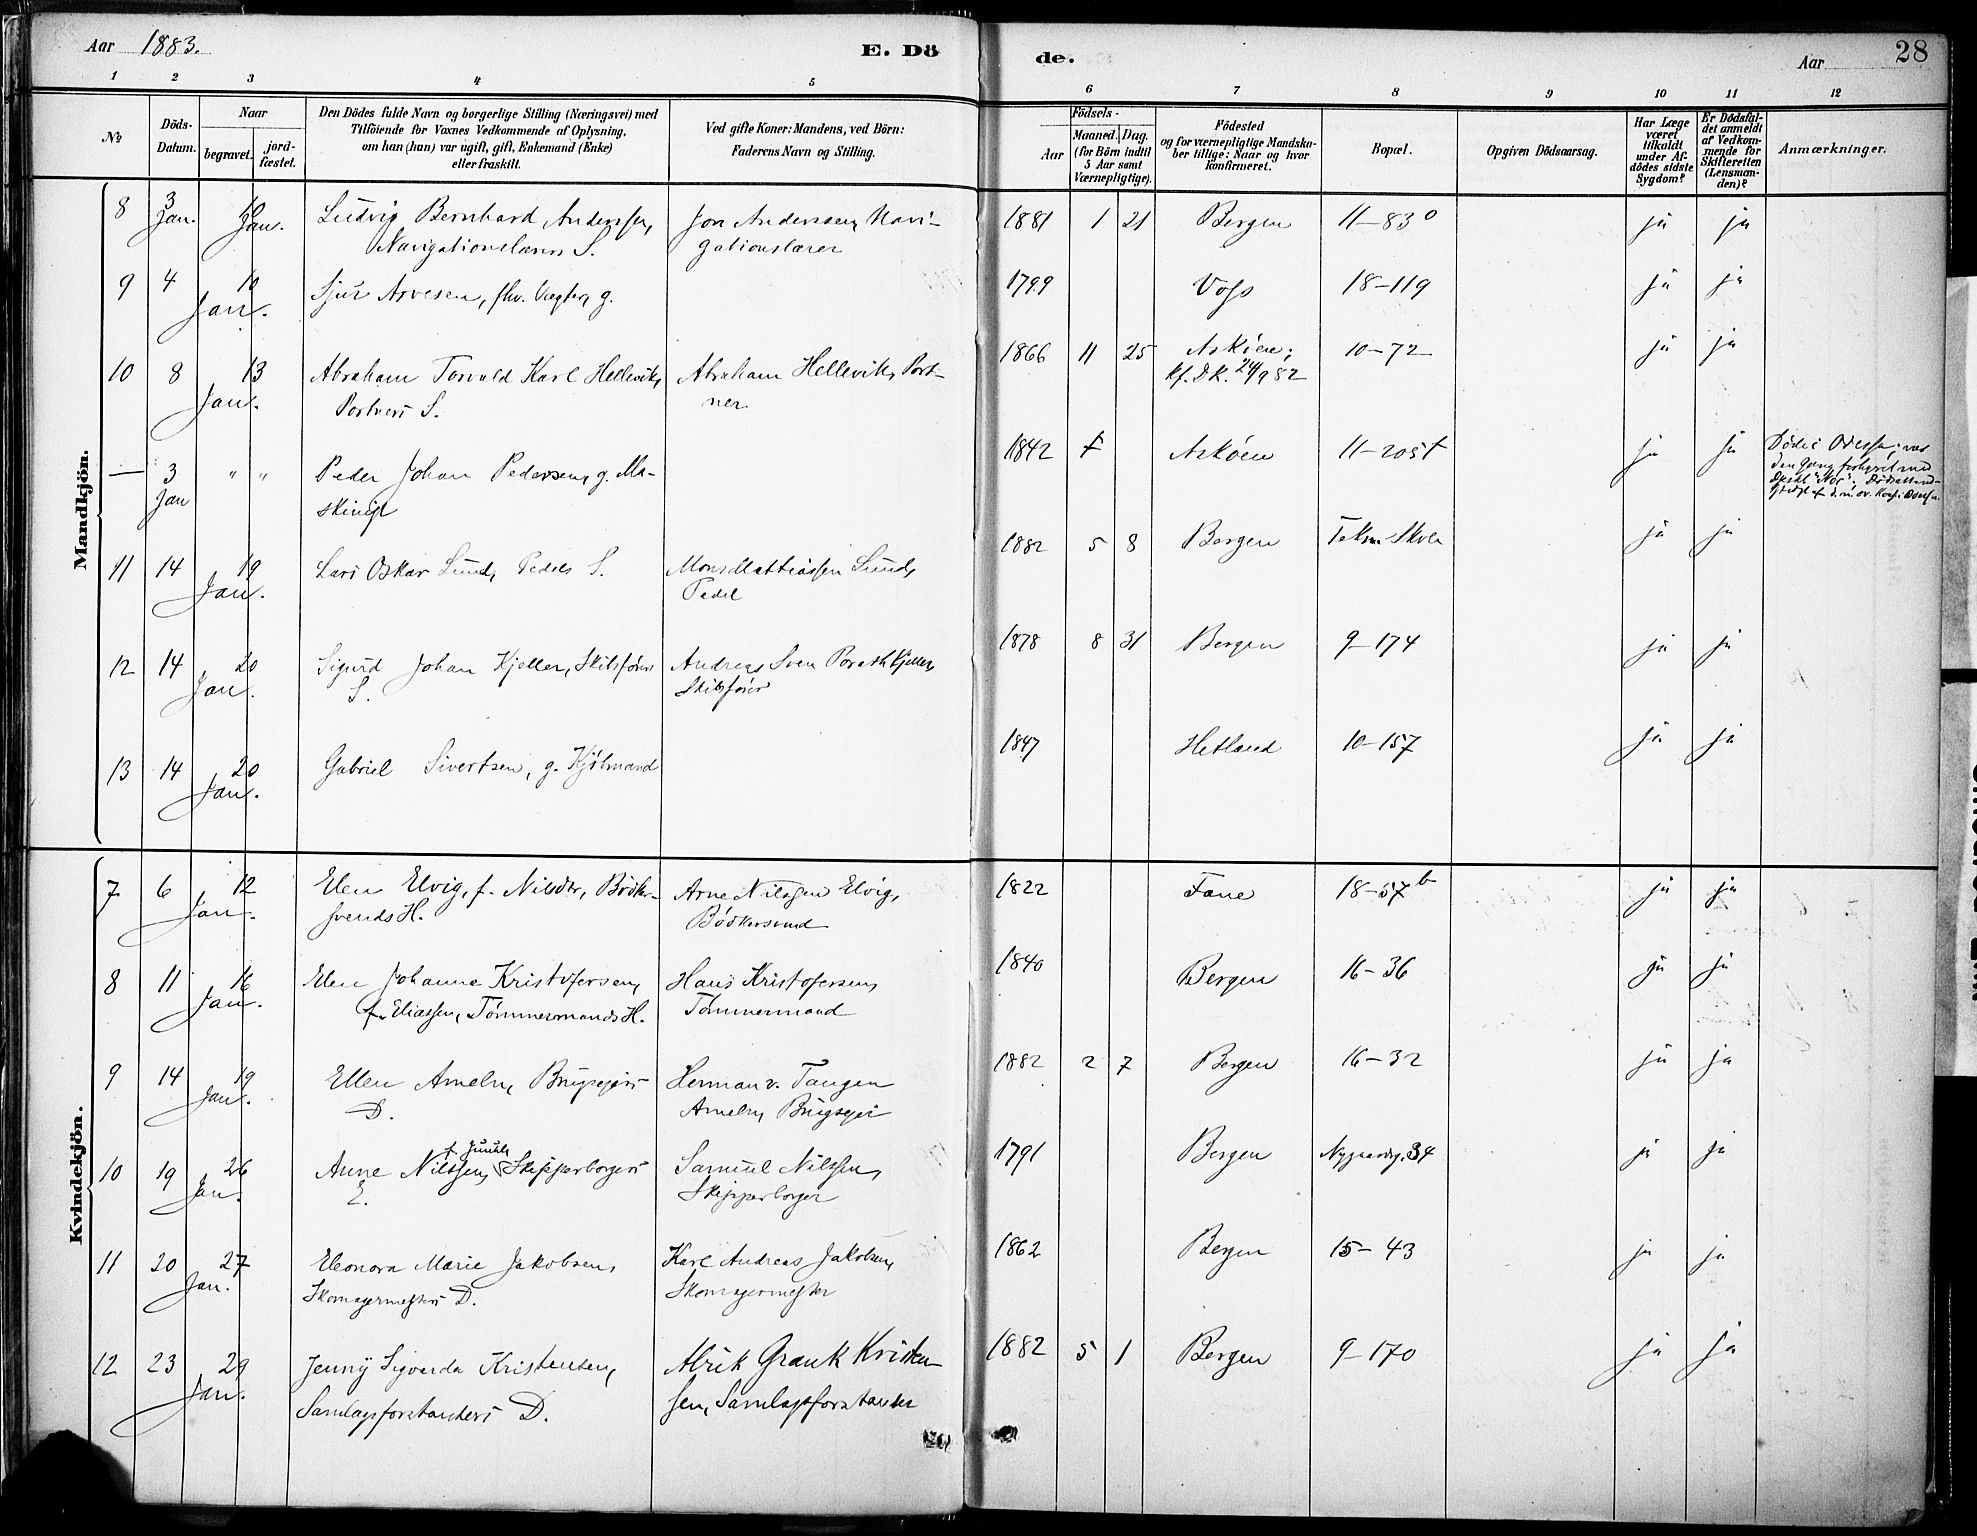 Aar 1883.
E. Dö
de.
Aar
28
1 2 3 4 5 6 7 8 9 10 11 12
No
Döds-
Datum.
Naar
begravet.
jord-
fæstet.
Den Dödes fulde Navn og borgerlige Stilling (Næringsvei) med
Tilföiende for Voxnes Vedkommende af Oplysning,
om han (hun) var ugift, gift, Enkemand (Enke)
eller fraskilt.
Ved gifte Koner: Mandens, ved Börn:
Faderens Navn og Stilling.
Födsels-
Aar
Maaned. Dag.
(for Börn indtil
5 Aar samt
Værnepligtige).
Födested
og for værnepligtige Mandska-
ber tillige: Naar og hvor
konfirmeret.
Bopæl.
Opgiven Dödsaarsag.
Har Læge
været
tilkaldt
under Af-
dödes sidste
Sygdom?
Er Dödsfal-
det anmeldt
af Vedkom-
mende for
Skifteretten
(Lensman-
den)?
Anmærkninger.
Mandkjön.
8 3 Jan. 10 Jan. Ludvig Bernhard Anderssen,
Navigationslærers S.
Jon Anderssen, Navi-
gationslærer
1881 1 21 Bergen 11-83 o ja ja
9 4 10 Jan. Sjur Arvesen, fhv. Vægter, g.
1799 Voss 18-119 ja ja
10 8 13 Jan. Abraham Torvald Karl Hellevik,
Portners S.
Abraham Hellevik, Port-
ner
1866 11 25 Askøen;
kf. DK. 24/9 82
10-72 ja ja
— 3 Jan " " Peder Johan Pedersen, g. Ma-
skinist
1842 Askøen 11-205 ja ja
Døde i Odessa; var
11 14 19 Jan. Lars Oskar Lund, Pedels S.
Mons Mattiassen Lund,
Pedel
1882 5 8 Bergen Tekn. Skole ja ja
12 14 20 Jan. Sigurd Johan Kjeller, Skibsførers
S.
Andreas Sven Porath Kjeller,
Skibsfører
1878 8 31 Bergen 9-174 ja ja
13 14 20 Jan. Gabriel Sivertsen, g. Kjølmand
1847 Hetland 10-157 ja ja
Kvindekjön.
7 6 12 Jan. Elen Elvig, f. Nilsdtr, Bødker-
svends H.
Arne Nilssen Elvig,
Bødkersvend
1822 Fane 18-57 b ja ja
8 11 16 Jan. Elen Johanne Kristofersen,
f. Eliassen, Tømmermands H.
Hans Kristofersen,
Tømmermand
1840 Bergen 16-36 ja ja
9 14 19 Jan. Ellen Ameln, Brugseiers
D.
Herman v. Tangen
Ameln, Brugseier
1882 2 7 Bergen 16-32 ja ja
10 19 26 Jan. Anne Nilssen, Skipperborgers
E.
Samuel Nilssen,
Skipperborger
1791 Bergen Nygaardsg. 34 ja ja
11 20 27 Jan. Eleonora Marie Jakobsen,
Skomagermesters D.
Karl Andreas Jakobsen,
Skomagermester
1862 Bergen 15-43 ja ja
12 23 29 Jan. Jenny Sigvarda Kristensen,
Samlagsforstanders D.
Alrik Grauk Kristen-
sen, Samlagsforstander
1882 5 1 Bergen 9-170 ja ja